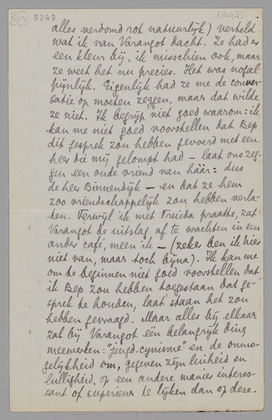 5249
alles verdomd rot natuurlijk) verteld
wat ik van Varangot dacht. Ze had er
een kleur bij, ik misschien ook, maar
ze weet het nu precies. Het was nogal
pijnlijk. Eigenlijk had ze me de conver-
satie op moeten zeggen, maar dat wilde
ze niet. Ik begrijp niet goed waarom: ik
kan me niet goed voorstellen dat Bep
dit gesprek zou hebben gevoerd met een
heer die mij gelompt had – laat ons zeg-
gen een oude vriend van háár: dus
de heer Binnendijk – en dat ze hem
zoo vriendschappelijk zou hebben verla-
ten. Terwijl ik met Fruida praatte, zat
Varangot de uitslag af te wachten in een
ander café, meen ik – (zeker ben ik hier
niet van, maar toch bijna). Ik kan me
om te beginnen niet goed voorstellen dat
ik Bep zou hebben toegestaan dat ge-
sprek te houden, laat staan het zou
hebben gevraagd. Maar alles bij elkaar
zal bij Varangot één belangrijk ding
meewerken: "jeugd-cynisme" en de onmo-
gelijkheid om, gegeven zijn luiheid en
lulligheid, op een andere manier interes-
sant of superieur te lijken dan op deze.